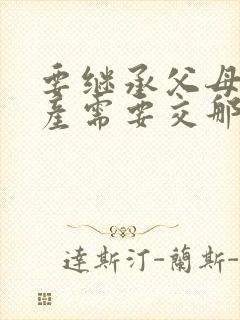 要继承父母
产需要交那
達斯汀-蘭斯-